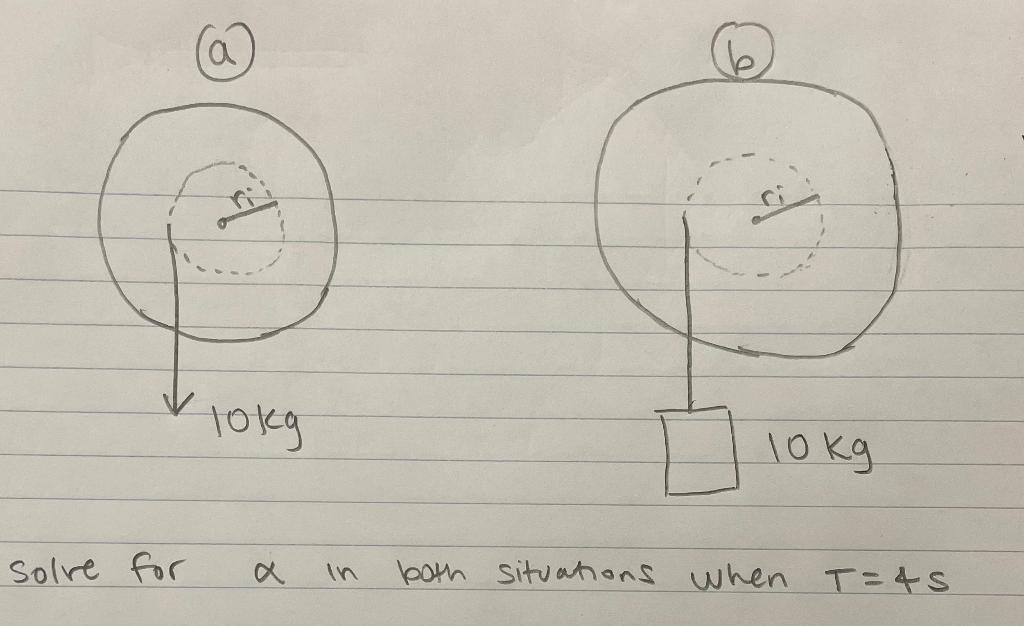 a
b
ri
ri
10kg
10 kg
solve for α in both situations when T = 4 s